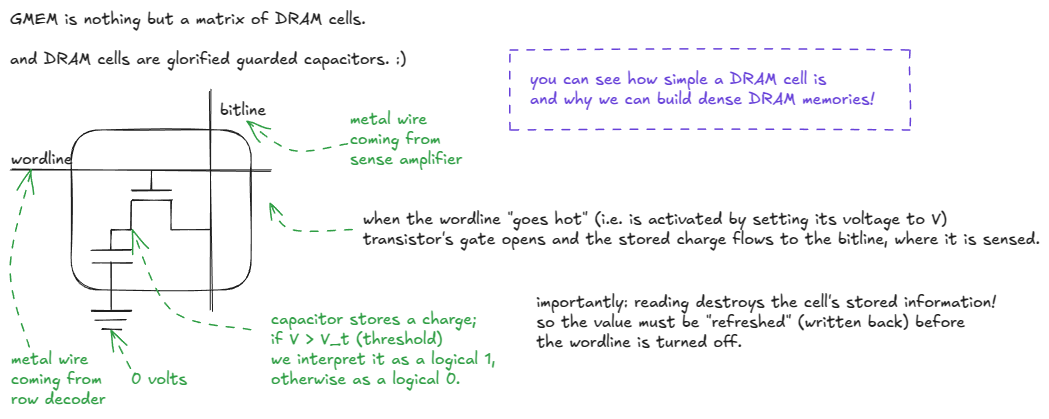 GMEM is nothing but a matrix of DRAM cells.
and DRAM cells are glorified guarded capacitors. :)
you can see how simple a DRAM cell is
and why we can build dense DRAM memories!
bitline
metal wire
coming from
sense amplifier
wordline
when the wordline "goes hot" (i.e. is activated by setting its voltage to V)
transistor's gate opens and the stored charge flows to the bitline, where it is sensed.
importantly: reading destroys the cell's stored information!
so the value must be "refreshed" (written back) before
the wordline is turned off.
capacitor stores a charge;
if V > V_t (threshold)
we interpret it as a logical 1,
otherwise as a logical 0.
metal wire
coming from
row decoder
0 volts